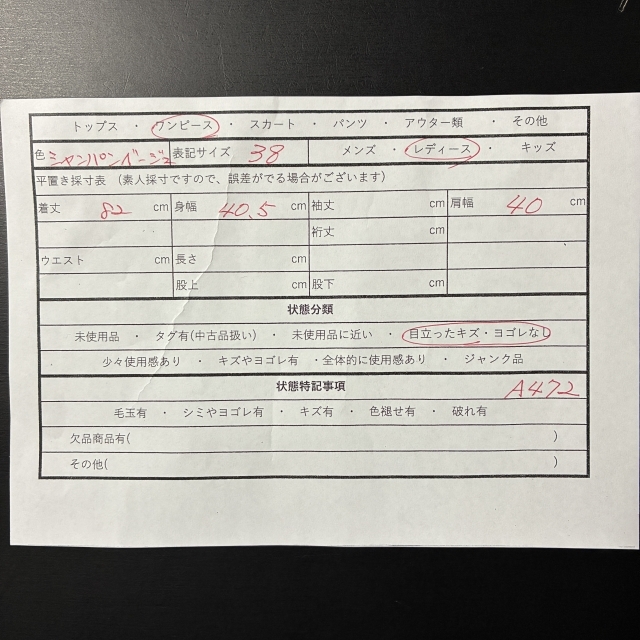 トップス ・ ワンピース ・ スカート ・ パンツ ・ アウター類 ・ その他
色 シャンパンベージュ 表記サイズ 38 メンズ ・ レディース ・ キッズ
平置き採寸表 （素人採寸ですので、誤差がでる場合がございます）
着丈 82 cm 身幅 40.5 cm 袖丈 cm 肩幅 40 cm
裄丈 cm
ウエスト cm 長さ cm
股上 cm 股下 cm
状態分類
未使用品 ・ タグ有(中古品扱い) ・ 未使用品に近い ・ 目立ったキズ・ヨゴレなし
少々使用感あり ・ キズやヨゴレ有 ・全体的に使用感あり ・ ジャンク品
状態特記事項 A472
毛玉有 ・ シミやヨゴレ有 ・ キズ有 ・ 色褪せ有 ・ 破れ有
欠品商品有( )
その他( )